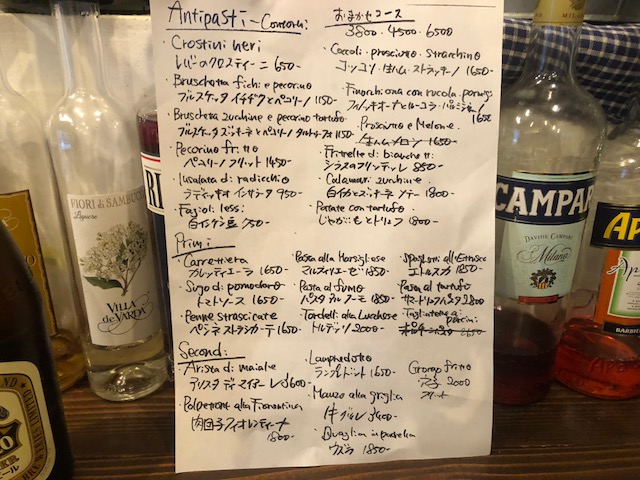 Antipasti - Contorni
Crostini neri
レバーのクロスティーニ 650-
Bruschetta fichi e pecorino
ブルスケッタ イチヂクとペコリーノ 1150-
Bruschetta zucchine e pecorino tartufo
ブルスケッタ ズッキーネとペコリーノタルトゥーフォ 1150
Pecorino fritto
ペコリーノフリット 1450-
Insalata di radicchio
ラディッキオ インサラータ 950-
Fagioli lessi
白インゲン豆 750-
おまかせコース
3800. 4500. 6500
Coccoli. prosciutto stracchino
コッコリ・生ハム・ストラッキーノ 1650-
Finocchiona con rucola. parmigi
フィノッキオーナとルーコラ・パルミジャーノ
1650
Prosciutto e Melone.
生ハムメロン 1650-
Frittelle di bianchetti
シラスのフリッテッレ 850-
Calamari zucchine
白イカとズッキーネ ソテー 1800-
Patate con tartufo
じゃがいもとトリュフ 1800-
Primi
Carrettiera
カレッティエーラ 1650-
Sugo di pomodoro
トマトソース 1650-
Penne strascicate
ペンネストラシカーテ 1650-
Pasta alla Marsigliese
マルスィリエーゼ 1850-
Pasta al fumo
パスタ アル フーモ 1850-
Tordelli alla Lucchese
トルデッリ 2000-
Spaghetti all'Etrusca
エトルスカ 1850-
Pasta al tartufo
サマートリュフパスタ 2800
Tagliatelle ai porcini
Secondi
Arista di maiale
アリスタ ディ マイアーレ 3600-
Polpettone alla Fiorentina
肉団子フィオレンティーナ
1800-
Lampredotto
ランプレドット 1650-
Manzo alla griglia
牛グリル 3400-
Quaglia in padella
ウズラ 1850-
Grongo fritto
穴子 2000
フリット
FIORI di SAMBUCO
Liquore
VILLA
de VARDA
MILANO
CAMPARI
DAVIDE CAMPARI
Milano
Aperol
BARBIERI